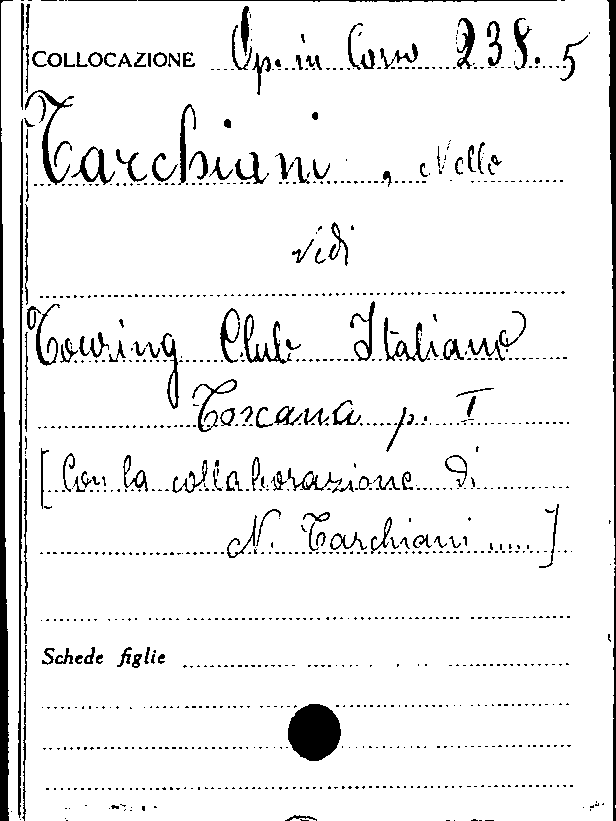 COLLOCAZIONE Op. in Corso 238.5
Tarchiani, Nello
vedi
Touring Club Italiano
Toscana p. I
[Con la collaborazione di
N. Tarchiani .....]
Schede figlie